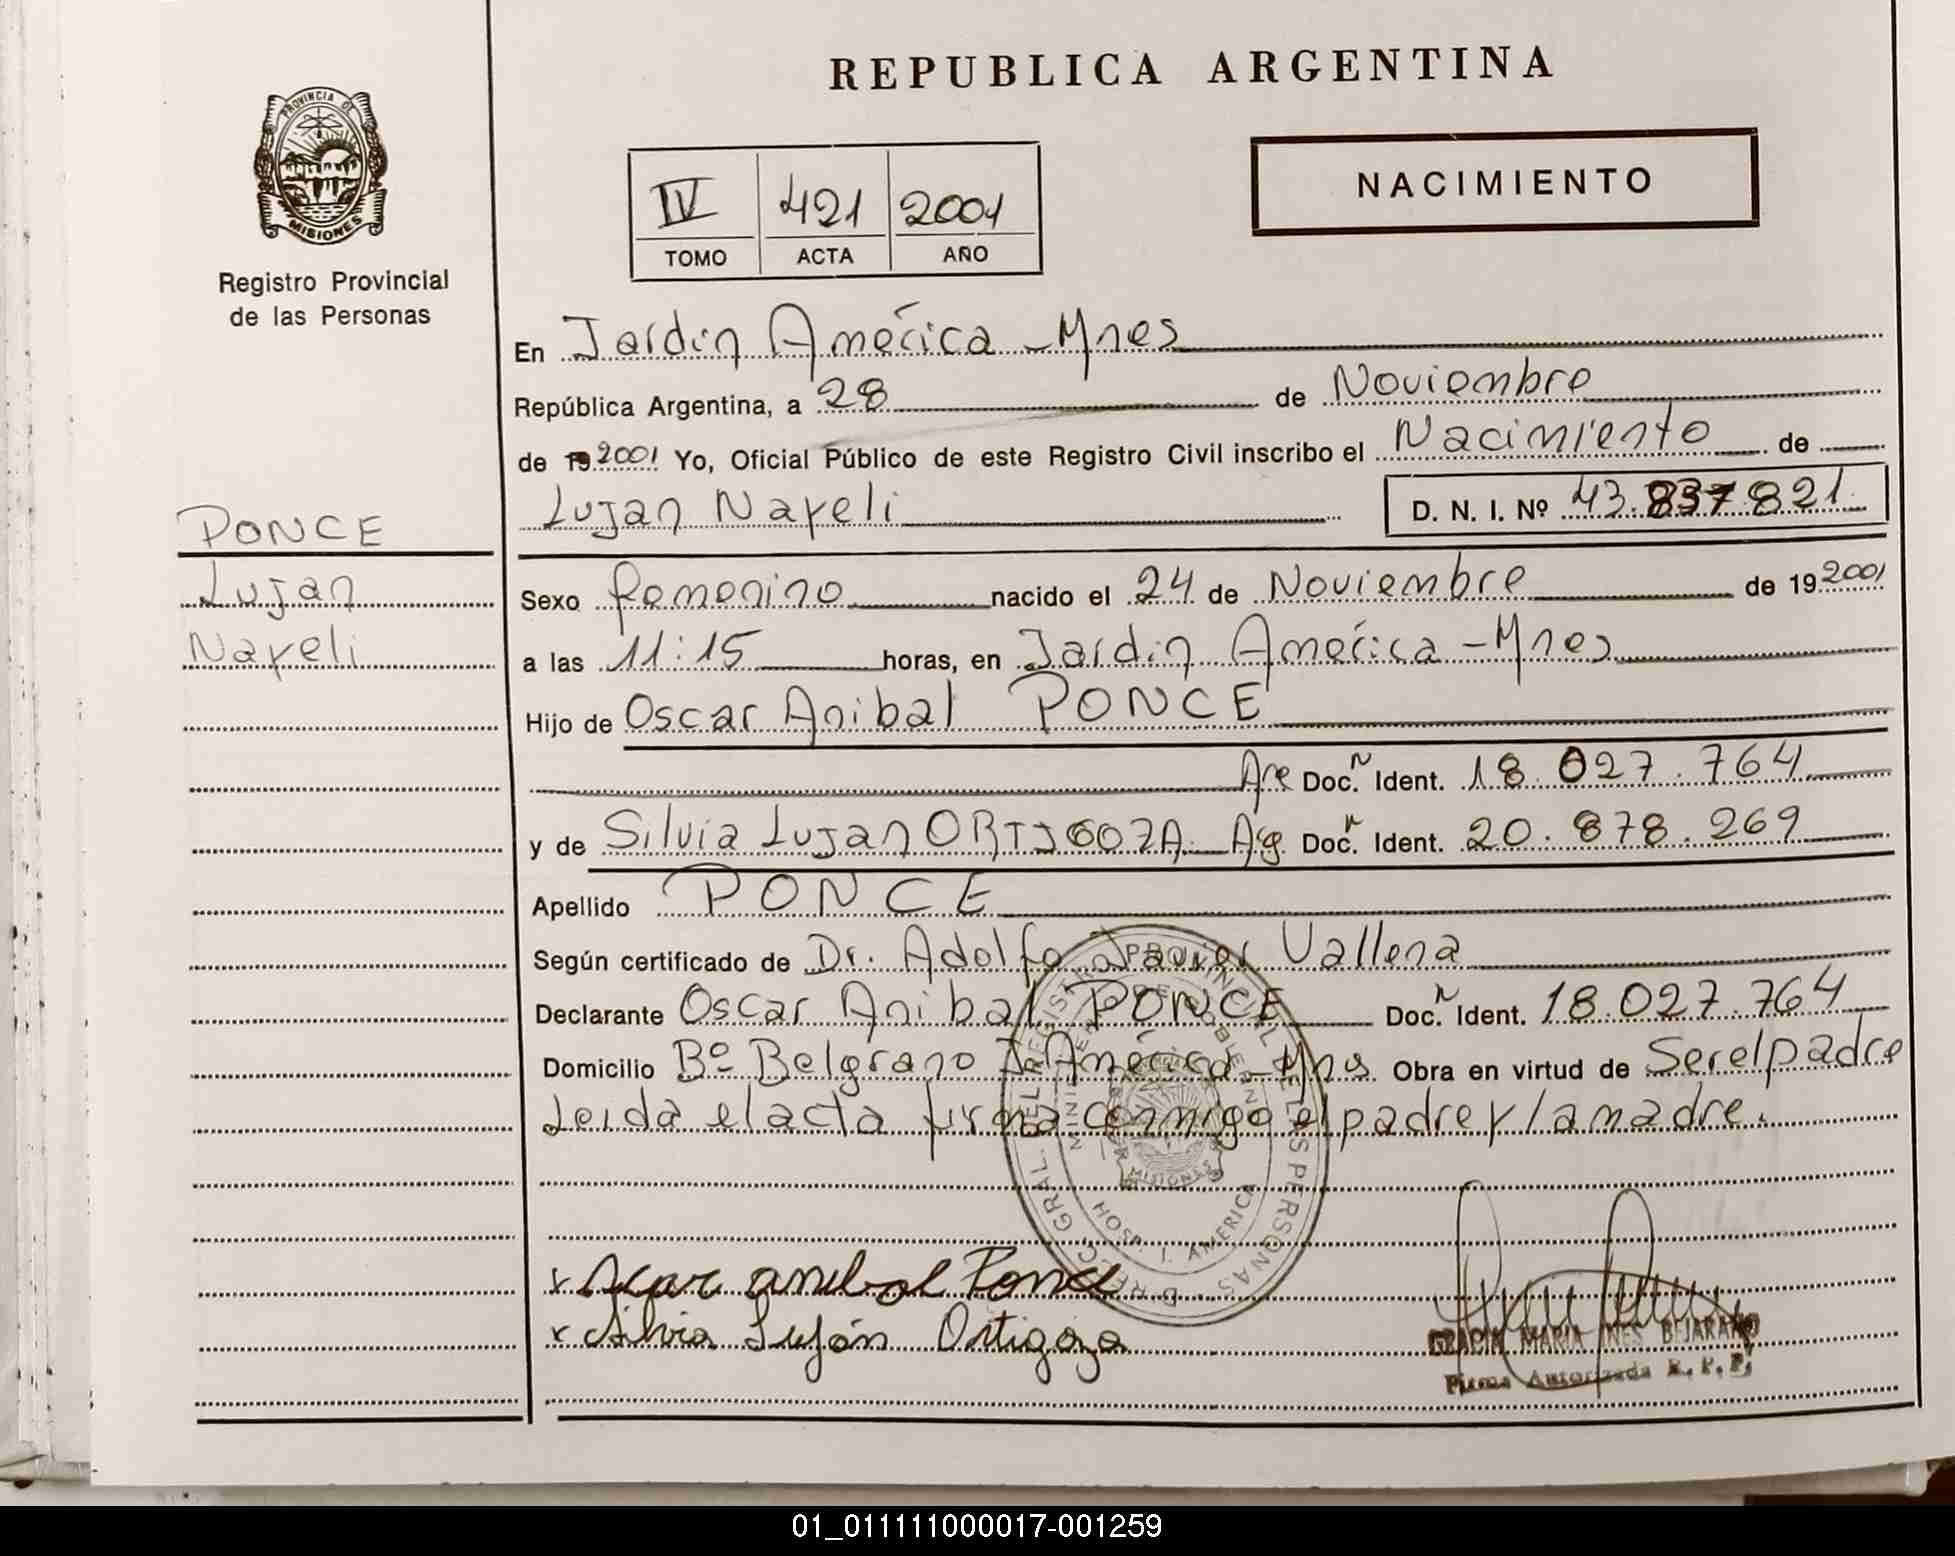 REPUBLICA ARGENTINA
PROVINCIA DE
MISIONES
Registro Provincial
de las Personas
IV 421 2001
TOMO ACTA AÑO
NACIMIENTO
En Jardin América - Mnes
República Argentina, a 28 de Noviembre
de 19 2001 Yo, Oficial Público de este Registro Civil inscribo el Nacimiento de
Lujan Nayeli D. N. I. Nº 43.837 821
PONCE
Lujan
Nayeli
Sexo femenino nacido el 24 de Noviembre de 19 2001
a las 11:15 horas, en Jardin América - Mnes
Hijo de Oscar Anibal PONCE
Are Doc. Ident. 18.027.764
y de Silvia Lujan ORTIGOZA Doc. Ident. 20.878.269
Apellido PONCE
Según certificado de Dr. Adolfo Javier Vallena
Declarante Oscar Anibal PONCE Doc. Ident. 18.027.764
Domicilio Bº Belgrano J. América - Mnes Obra en virtud de Ser el padre
Leida el acta firma conmigo el padre y la madre.
DIRECC. GRAL. DEL REGISTRO PROVINCIAL DE LAS PERSONAS
MISIONES
HOSP. J. AMERICA
x Oscar anibal Ponce
x Silvia Luján Ortigoza
GRACIA MARIA INES BEJARANO
Firma Autorizada R. P. P.
01_011111000017-001259